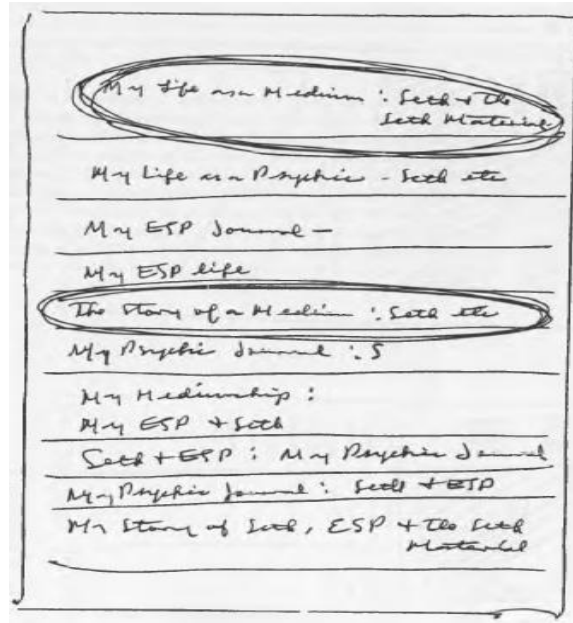 My Life as a Medium : Seth + the
Seth Material
My Life as a Psychic - Seth etc
My ESP Journal —
My ESP life
The Story of a Medium : Seth etc
My Psychic Journal : S
My Mediumship :
My ESP + Seth
Seth + ESP : My Psychic Journal
My Psychic Journal : Seth + ESP
My Story of Seth, ESP + the Seth
Material